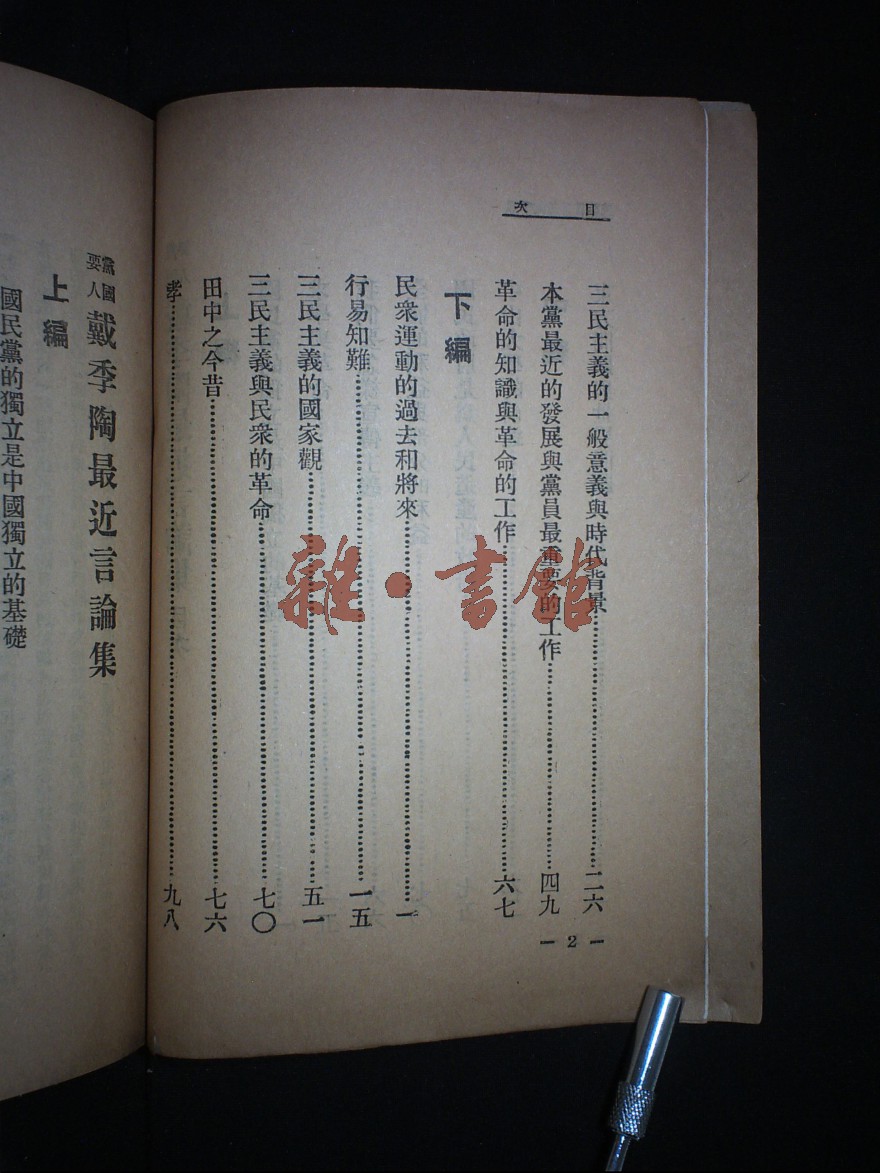 目次
三民主義的一般意義與時代背景……二六
本黨最近的發展與黨員最重要的工作……四九
革命的知識與革命的工作……六七
下編
民衆運動的過去和將來……一
行易知難……一五
三民主義的國家觀……五一
三民主義與民衆的革命……七〇
田中之今昔……七六
孝……九八
— 2 —
黨國要人戴季陶最近言論集
上編
國民黨的獨立是中國獨立的基礎
雜·書館